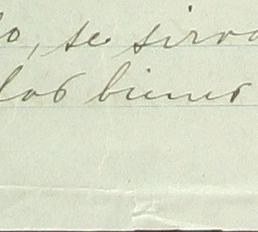 lo, se sirva
los bienes